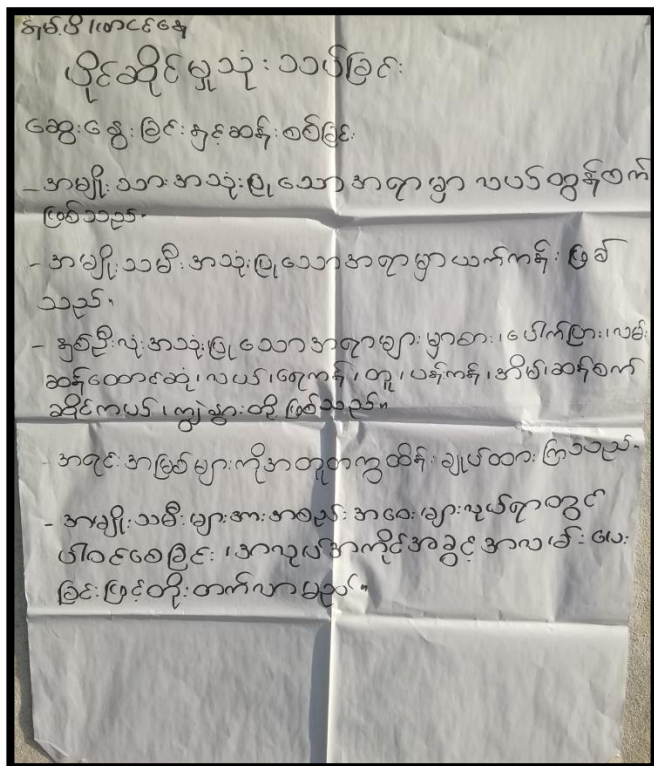 ပိုင်ဆိုင်မှုသုံးသပ်ခြင်း
ဆွေးနွေးခြင်းနှင့်ဆန်းစစ်ခြင်း
- အမျိုးသားအသုံးပြုသောအရာမှာ လယ်ထွန်စက်
ဖြစ်သည်။
- အမျိုးသမီးအသုံးပြုသောအရာမှာယက်ကန်းဖြစ်
သည်။
- နှစ်ဦးလုံးအသုံးပြုသောအရာများမှာဓား၊ပေါက်ပြား၊လမ်း
ဆန်ထောင်းဆုံ၊လယ်၊ရေကန်၊တူ၊ပန်းကန်၊အိမ်၊ဆန်စက်
ဆိုင်ကယ်၊ကျွဲနွားတို့ဖြစ်သည်။
- အရင်းအမြစ်များကိုအတူတကွထိန်းချုပ်ထားကြသည်။
- အမျိုးသမီးများအားအစည်းအဝေးများသို့ယ်ရာတွင်
ပါဝင်စေခြင်း၊အလုပ်အကိုင်အခွင့်အလမ်းပေး
ခြင်းဖြင့်တိုးတက်လာမည်။